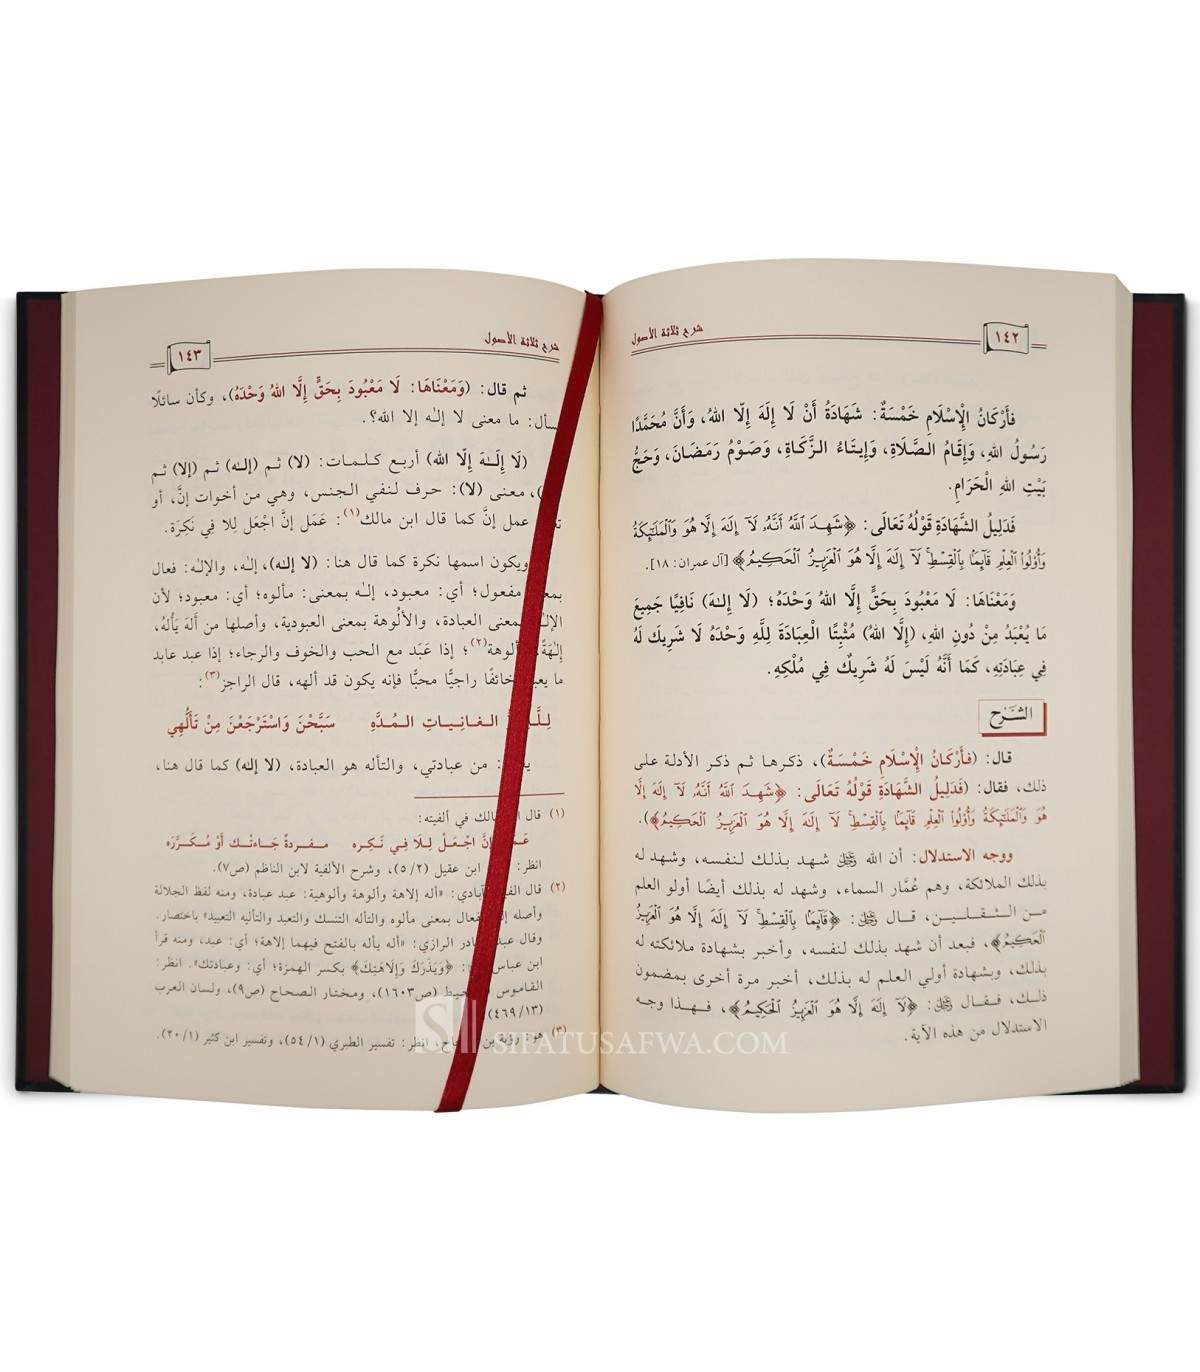 ١٤٢
شرح ثلاثة الأصول
فَأَرْكَانُ الْإِسْلَامِ خَمْسَةٌ: شَهَادَةُ أَنْ لَا إِلَهَ إِلَّا اللهُ، وَأَنَّ مُحَمَّدًا
رَسُولُ اللهِ، وَإِقَامُ الصَّلَاةِ، وَإِيتَاءُ الزَّكَاةِ، وَصَوْمُ رَمَضَانَ، وَحَجُّ
بَيْتِ اللهِ الْحَرَامِ.
فَدَلِيلُ الشَّهَادَةِ قَوْلُهُ تَعَالَى: ﴿شَهِدَ ٱللَّهُ أَنَّهُۥ لَآ إِلَٰهَ إِلَّا هُوَ وَٱلْمَلَٰٓئِكَةُ
وَأُو۟لُوا۟ ٱلْعِلْمِ قَآئِمًۢا بِٱلْقِسْطِ ۚ لَآ إِلَٰهَ إِلَّا هُوَ ٱلْعَزِيزُ ٱلْحَكِيمُ﴾ [آل عمران: ١٨].
وَمَعْنَاهَا: لَا مَعْبُودَ بِحَقٍّ إِلَّا اللهُ وَحْدَهُ؛ (لَا إِلَهَ) نَافِيًا جَمِيعَ
مَا يُعْبَدُ مِنْ دُونِ اللهِ، (إِلَّا اللهُ) مُثْبِتًا الْعِبَادَةَ لِلَّهِ وَحْدَهُ لَا شَرِيكَ لَهُ
فِي عِبَادَتِهِ، كَمَا أَنَّهُ لَيْسَ لَهُ شَرِيكٌ فِي مُلْكِهِ.
الشَّرْح
قال: (فَأَرْكَانُ الْإِسْلَامِ خَمْسَةٌ)، ذكرها ثم ذكر الأدلة على
ذلك، فقال: (فَدَلِيلُ الشَّهَادَةِ قَوْلُهُ تَعَالَى: ﴿شَهِدَ ٱللَّهُ أَنَّهُۥ لَآ إِلَٰهَ إِلَّا
هُوَ وَٱلْمَلَٰٓئِكَةُ وَأُو۟لُوا۟ ٱلْعِلْمِ قَآئِمًۢا بِٱلْقِسْطِ ۚ لَآ إِلَٰهَ إِلَّا هُوَ ٱلْعَزِيزُ ٱلْحَكِيمُ﴾).
ووجه الاستدلال: أن الله ﷻ شهد بذلك لنفسه، وشهد له
بذلك الملائكة، وهم عُمَّار السماء، وشهد له بذلك أيضًا أولو العلم
من الثقلين، قال ﷻ: ﴿قَآئِمًۢا بِٱلْقِسْطِ ۚ لَآ إِلَٰهَ إِلَّا هُوَ ٱلْعَزِيزُ
ٱلْحَكِيمُ﴾، فبعد أن شهد بذلك لنفسه، وأخبر بشهادة ملائكته له
بذلك، وبشهادة أولي العلم له بذلك، أخبر مرة أخرى بمضمون
ذلك، فقال ﷻ: ﴿لَآ إِلَٰهَ إِلَّا هُوَ ٱلْعَزِيزُ ٱلْحَكِيمُ﴾، فهذا وجه
الاستدلال من هذه الآية.
شرح ثلاثة الأصول
١٤٣
ثم قال: (وَمَعْنَاهَا: لَا مَعْبُودَ بِحَقٍّ إِلَّا اللهُ وَحْدَهُ)، وكأن سائلًا
سأل: ما معنى لا إلٰه إلا الله؟.
(لَا إِلَـٰهَ إِلَّا الله) أربع كلمات: (لا) ثم (إلـٰه) ثم (إلا) ثم
، معنى (لا): حرف لنفي الجنس، وهي من أخوات إنَّ، أو
عمل إنَّ كما قال ابن مالك(١): عَمَل إنَّ اجْعَل لِلا فِي نَكِرَة.
ويكون اسمها نكرة كما قال هنا: (لا إلـٰه)، إلـٰه، والإلـٰه: فعال
مفعول؛ أي: معبود، إلـٰه بمعنى: مألوه؛ أي: معبود؛ لأن
بمعنى العبادة، والألُوهة بمعنى العبودية، وأصلها من أَلَه يَألُه،
إِلَهَةً، ألوهة(٢)؛ إذا عَبَد مع الحب والخوف والرجاء؛ إذا عبد عابد
ما يعبد خائفًا راجيًا محبًا فإنه يكون قد ألهه، قال الراجز(٣):
الـغـانـيـاتِ الـمُـدَّهِ سَبَّحْنَ وَاسْتَرْجَعْنَ مِنْ تَأَلُّهِي
من عبادتي، والتأله هو العبادة، (لا إلـٰه) كما قال هنا،
(١) قال في ألفيته:
إنَّ اجْعَلْ لِلَا فِي نَكِرَه مـفـردةً جَـاءَتْـكَ أَوْ مُـكَـرَّرَه
انظر: ابن عقيل (٥/٢)، وشرح الألفية لابن الناظم (ص٧).
(٢) قال آبادي: «أله إلاهة وألوهة وألوهية: عبد عبادة، ومنه لفظ الجلالة
وأصله فعال بمعنى مألوه والتأله التنسك والتعبد والتأليه التعبيد» باختصار.
وقال الرازي: «أله يأله بالفتح فيهما إلاهة؛ أي: عبد، ومنه قرأ
ابن عباس ﴿وَيَذَرَكَ وَإِلَاهَتِكَ﴾ بكسر الهمزة؛ أي: وعبادتك». انظر:
القاموس (ص١٦٠٣)، ومختار الصحاح (ص٩)، ولسان العرب
(٤٦٩/١٣)
(٣) هو: رؤبة بن انظر: تفسير الطبري (٥٤/١)، وتفسير ابن كثير (٢٠/١).
SIFATUSAFWA.COM